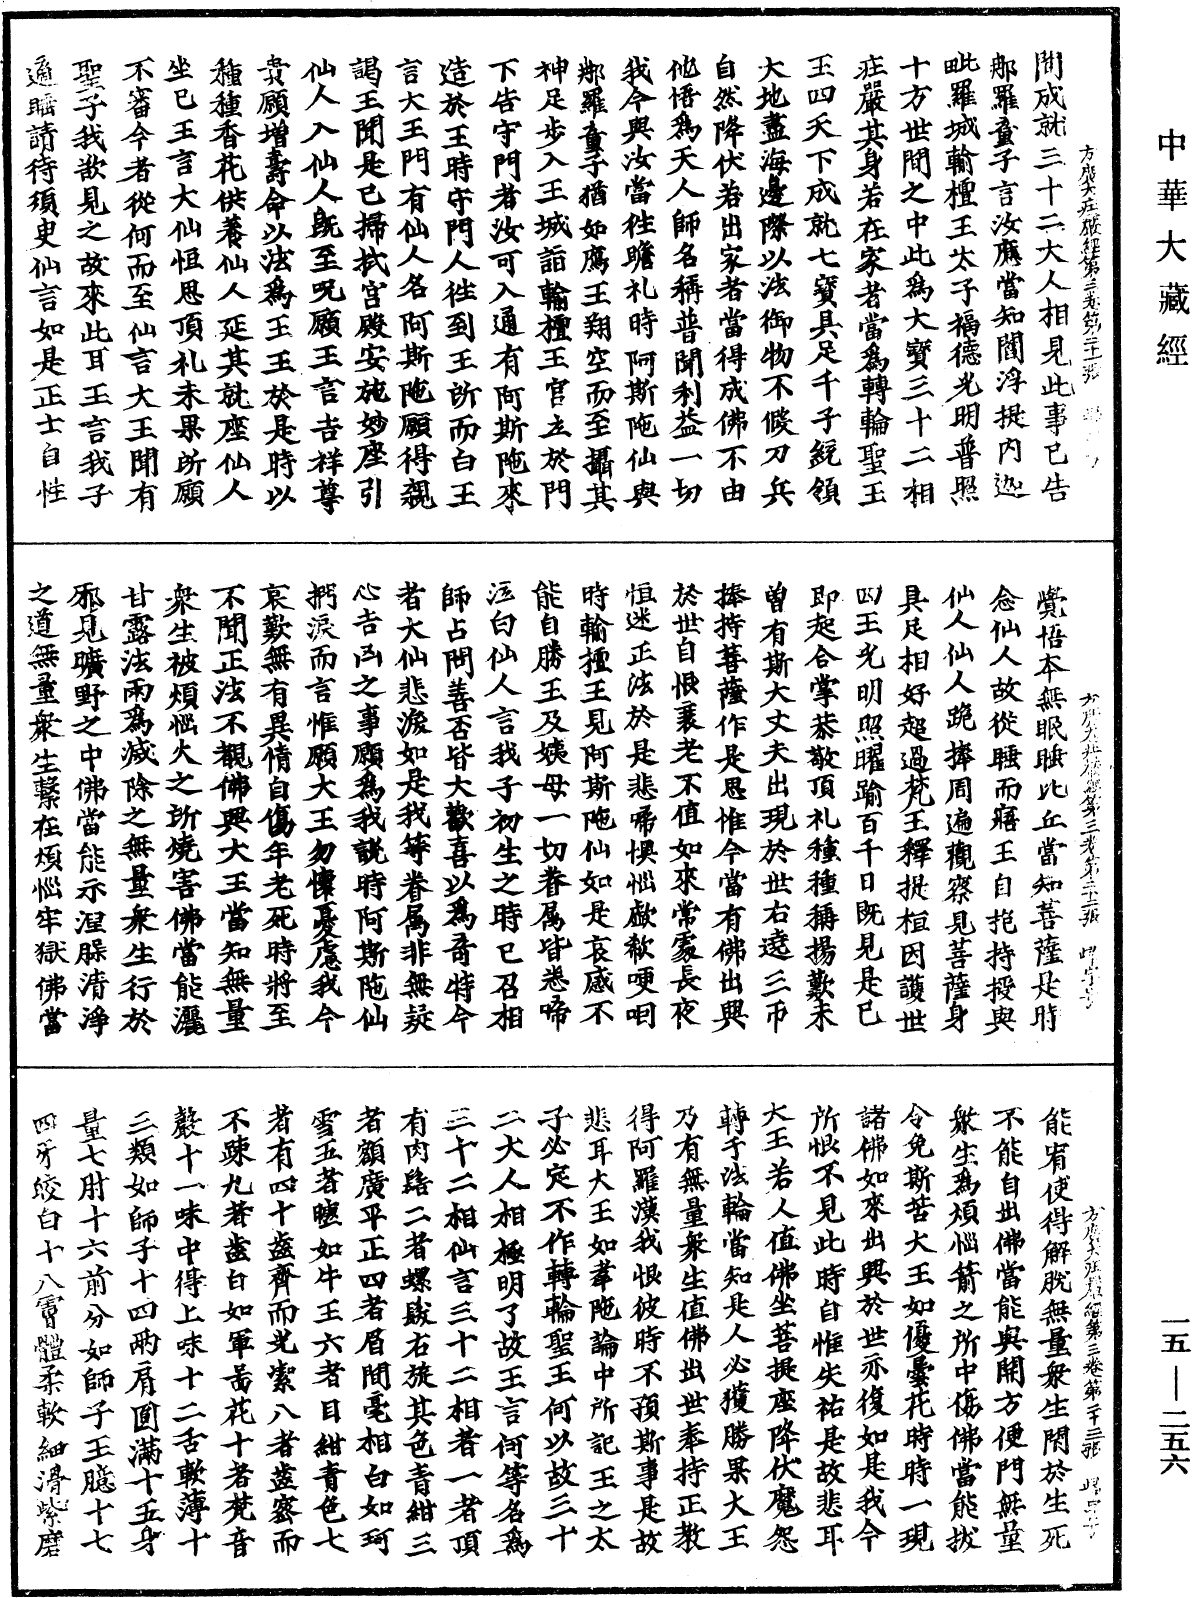 中華大藏經
方廣大莊嚴經第三卷第二十一張
閒成就三十二大人相見此事已告
那羅童子言汝應當知閻浮提内迦
毗羅城輸檀王太子福德光明普照
十方世間之中此爲大寶三十二相
莊嚴其身若在家者當爲轉輪聖王
王四天下成就七寶具足千子統領
大地盡海邊際以法御物不假刀兵
自然降伏若出家者當得成佛不由
他悟爲天人師名稱普聞利益一切
我今與汝當往瞻礼時阿斯陁仙與
那羅童子猶如鴈王翔空而至攝其
神足步入王城詣輸檀王宫立於門
下告守門者汝可入通有阿斯陁來
造於王時守門人往到王所而白王
言大王門有仙人名阿斯陁願得親
謁王聞是已掃拭宫殿安施妙座引
仙人入仙人旣至呪願王言吉祥尊
貴願增壽命以法爲王王於是時以
種種香花供養仙人延其就座仙人
坐已王言大仙恒思頂礼未果所願
不審今者從何而至仙言大王聞有
聖子我欲見之故來此耳王言我子
適睡請待須臾仙言如是正士自性
方廣大莊嚴經第三卷第二十二張
覺悟本無眠睡比丘當知菩薩是時
念仙人故從睡而寤王自抱持授與
仙人仙人跪捧周遍觀察見菩薩身
具足相好超過梵王釋提桓因護世
四王光明照曜踰百千日旣見是已
即起合掌恭敬頂礼種種稱揚歎未
曾有斯大丈夫出現於世右遶三帀
捧持菩薩作是思惟今當有佛出興
於世自恨衰老不值如來常處長夜
恒迷正法於是悲啼懊惱歔欷哽咽
時輸檀王見阿斯陁仙如是哀感不
能自勝王及姨母一切眷屬皆悉啼
泣白仙人言我子初生之時已召相
師占問善否皆大歡喜以爲奇特今
者大仙悲淚如是我等眷属非無疑
心吉凶之事願爲我說時阿斯陁仙
捫淚而言惟願大王勿懷憂慮我今
哀歎無有異情自傷年老死時將至
不聞正法不覩佛興大王當知無量
衆生被煩惱火之所燒害佛當能灑
甘露法雨爲滅除之無量衆生行於
邪見曠野之中佛當能示涅槃清淨
之道無量衆生繫在煩惱牢獄佛當
方廣大莊嚴經第三卷第二十三張
能宥使得解脱無量衆生閇於生死
不能自出佛當能與開方便門無量
衆生爲煩惱箭之所中傷佛當能拔
令免斯苦大王如優曇花時時一現
諸佛如來出興於世亦復如是我今
所恨不見此時自惟失祐是故悲耳
大王若人值佛坐菩提座降伏魔怨
轉于法輪當知是人必獲勝果大王
乃有無量衆生值佛出世奉持正教
得阿羅漢我恨彼時不預斯事是故
悲耳大王如韋陁論中所記王之太
子必定不作轉輪聖王何以故三十
二大人相極明了故王言何等名爲
三十二相仙言三十二相者一者頂
有肉髻二者螺髮右旋其色青紺三
者額廣平正四者眉間毫相白如珂
雪五者睫如牛王六者目紺青色七
者有四十齒齊而光潔八者齒密而
不踈九者齒白如軍荼花十者梵音
聲十一味中得上味十二舌軟薄十
三頰如師子十四兩肩圎滿十五身
量七肘十六前分如師子王臆十七
四牙皎白十八膚體柔軟細滑紫磨
一五—二五六